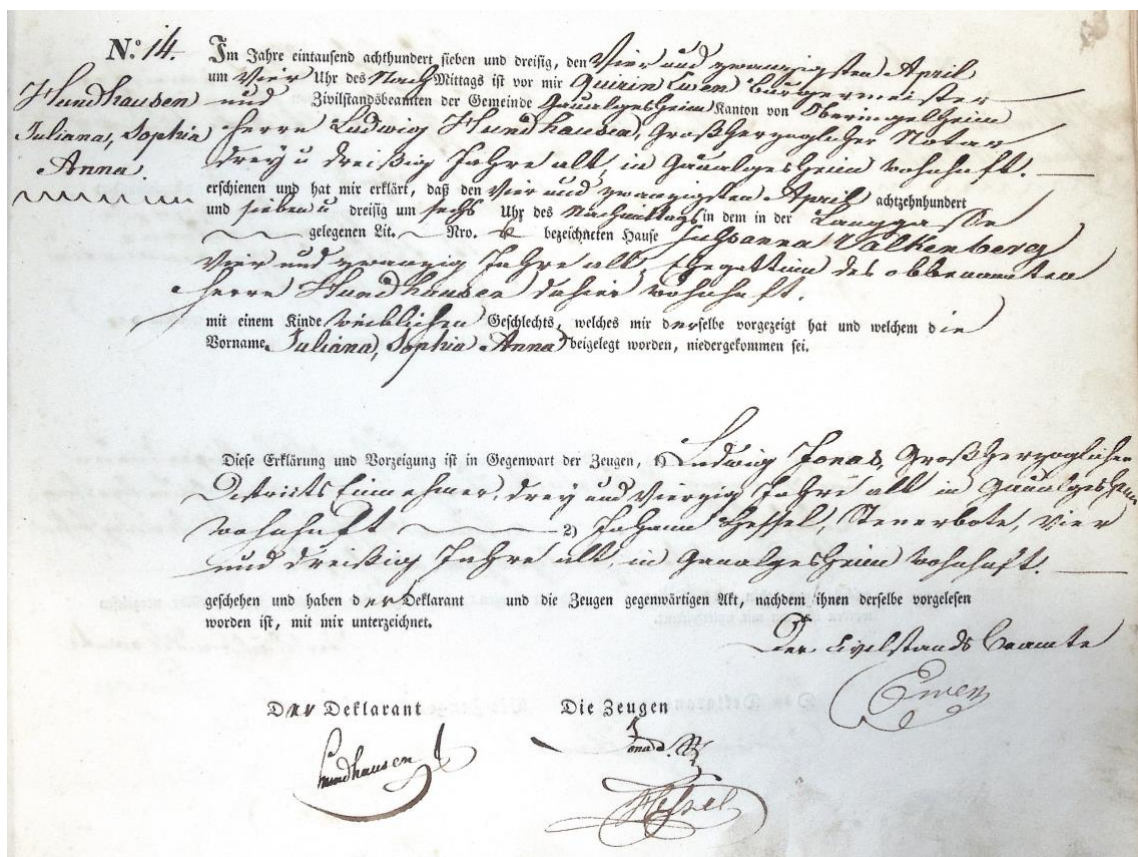 N.º 14.
Hundhausen
Juliana, Sophia
Anna.
Im Jahre eintausend achthundert sieben und dreisig, den Vier und zwanzigsten April
um Vier Uhr des NachMittags ist vor mir Quirin Ewen Bürgermeister
und Zivilstandsbeamten der Gemeinde Gaualgesheim Kanton von Oberingelheim
Herr Ludwig Hundhausen, Großherzoglicher Notar
drey u dreißig Jahre alt, in Gaualgesheim wohnhaft.
erschienen und hat mir erklärt, daß den Vier und zwanzigsten April achtzehnhundert
und sieben u dreisig um sechs Uhr des Nachmittags in dem in der Langgasse
gelegenen Lit. Nro. bezeichneten Hause Susanna Valkenberg
Vier und zwanzig Jahre alt, Ehegattinn des obbenannten
Herrn Hundhausen dahier wohnhaft.
mit einem Kinde weiblichen Geschlechts, welches mir derselbe vorgezeigt hat und welchem die
Vorname Juliana, Sophia Anna beigelegt worden, niedergekommen sei.
Diese Erklärung und Vorzeigung ist in Gegenwart der Zeugen, 1) Ludwig Jonas, Großherzoglicher
Districts Einnehmer, drey und Vierzig Jahre alt in Gaualgesheim
wohnhaft 2) Johann Hessel, Steuerbote, Vier
und dreißig Jahre alt, in Gaualgesheim wohnhaft.
geschehen und haben der Deklarant und die Zeugen gegenwärtigen Akt, nachdem ihnen derselbe vorgelesen
worden ist, mit mir unterzeichnet.
Der Civilstands Beamte
Ewen
Der Deklarant Die Zeugen
Hundhausen Jonas
Hessel